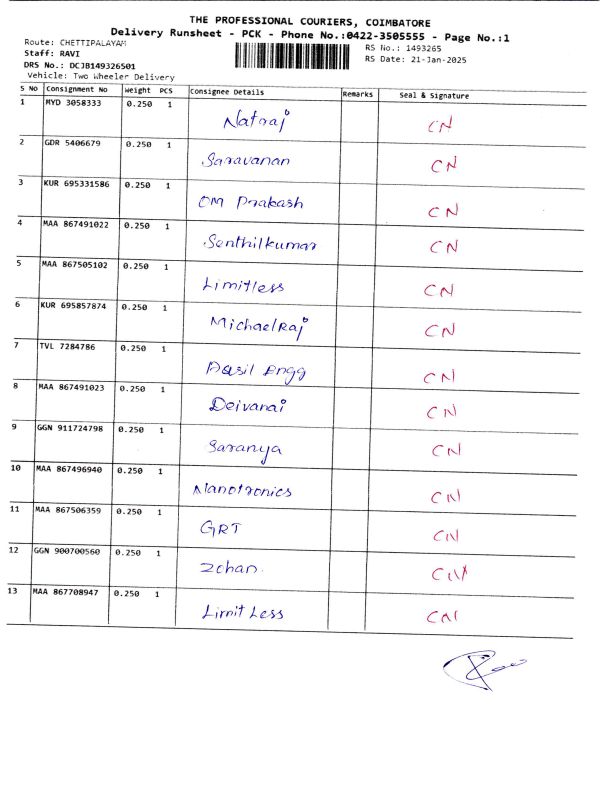 THE PROFESSIONAL COURIERS, COIMBATORE
Delivery Runsheet - PCK - Phone No.:0422-3505555 - Page No.:1
Route: CHETTIPALAYAM
Staff: RAVI
DRS No.: DCJB149326501
Vehicle: Two Wheeler Delivery
RS No.: 1493265
RS Date: 21-Jan-2025
S No Consignment No Weight PCS Consignee Details Remarks Seal & Signature
1 MYD 3058333 0.250 1 Nataraj CN
2 GDR 5406679 0.250 1 Saravanan CN
3 KUR 695331586 0.250 1 OM Prakash CN
4 MAA 867491022 0.250 1 Senthilkumar CN
5 MAA 867505102 0.250 1 Limitless CN
6 KUR 695857874 0.250 1 MichaelRaj CN
7 TVL 7284786 0.250 1 Engg CN
8 MAA 867491023 0.250 1 Deivanai CN
9 GGN 911724798 0.250 1 Saranya CN
10 MAA 867496940 0.250 1 Nanotronics CN
11 MAA 867506359 0.250 1 GRT CN
12 GGN 900700560 0.250 1 Zchan CN
13 MAA 867708947 0.250 1 Limit Less CN